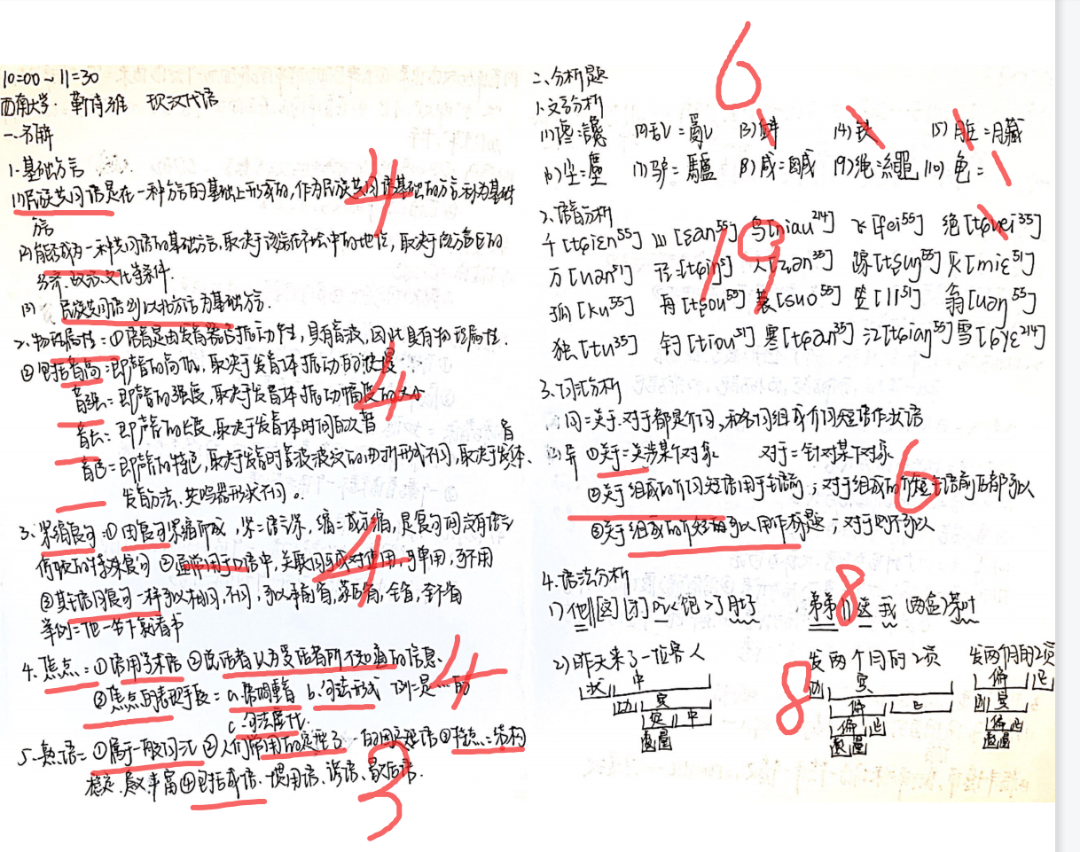 10:00~11:30
西南大学: 靳诗维 现汉代语
一、名解
1.基础方言
(1)民族共同语是在一种方言的基础上形成的,作为民族共同语基础的方言称为基础
方言
(2)能否成为一种共同语的基础方言,取决于该方言在社会中的地位,取决于该方言区的
经济、政治、文化等条件.
(3) 民族共同语则以北方方言为基础方言.
4
2.物理属性:①语音是由发音器官振动产生,具有音波,因此具有物理属性.
②包括音高:即声音的高低,取决于发音体振动的快慢
音强:即声音的强度,取决于发音体振动幅度的大小
音长:即声音的长度,取决于发音体时间的久暂
音色:即声音的特色,取决于发音时音波波纹的曲折形式不同,取决于发音体、
发音方法、共鸣器形状不同。
4
3.紧缩复句:①由复句紧缩而成,
②通常用于口语中,关联词可成对使用,可单用,可不用
举例:他一坐下就看书
4
4.焦点:①语用学术语 ②说话者认为受话者所不知道的信息.
③焦点的表现手段:a.常用重音 b.句法形式 例:是…的
4
5.熟语:①属于一般词汇 ②人们常用的定型了的固定短语 ③特点:结构
稳定、意义丰富 ④包括成语、惯用语、谚语、歇后语.
3
二、分析题
6
1.文字分析
(6)尘=塵 (7)驴=驢 (8)咸=鹹 (9)绳=繩 (10)龟=
2.语音分析
千[tɕiɛn⁵⁵] 山[san⁵⁵] 鸟[niau²¹⁴] 飞[fei⁵⁵] 绝[tɕyei³⁵]
万[uan⁵¹] 径[tɕiŋ⁵¹] 人[ʐən³⁵] 踪[tsuŋ⁵⁵] 灭[miɛ⁵¹]
孤[ku⁵⁵] 舟[tsou⁵⁵] 蓑[suo⁵⁵] 笠[li⁵¹] 翁[uəŋ⁵⁵]
独[tu³⁵] 钓[tiou⁵¹] 寒[tɕan³⁵] 江[tɕiaŋ⁵⁵] 雪[ɕyɛ²¹⁴]
19
3.词汇分析
1.同=关于、对于都是介词,和名词组成介词短语作状语
(2)异 ①关于=关涉某个对象 对于=针对某个对象
②关于组成的介词短语用于主语前;对于组成的介短主语前后都可以
③关于组成的介短可以用作标题;对于则不可以
6
4.语法分析
8
2)昨天来了一位客人 发两个月的工资 发两个月的工资
8